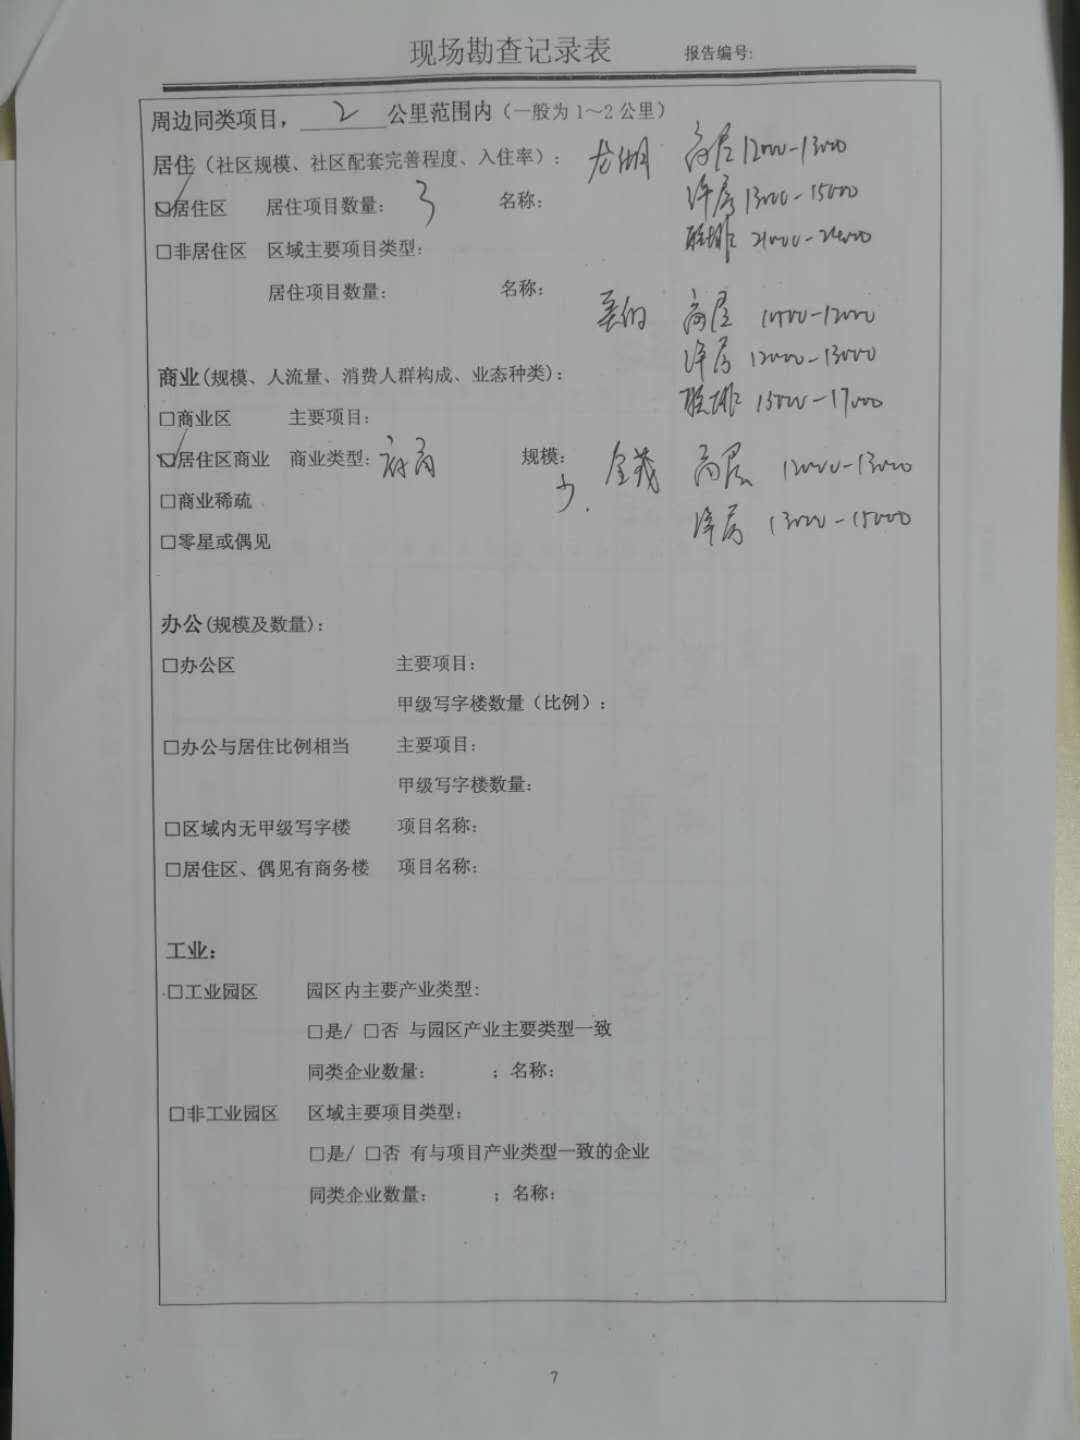 现场勘查记录表 报告编号:
周边同类项目，2公里范围内（一般为1～2公里）
居住（社区规模、社区配套完善程度、入住率）: 龙湖 高层 12000-13000
洋房 13000-15000
☑居住区 居住项目数量: 3 名称:
联排 21000-24000
□非居住区 区域主要项目类型:
居住项目数量: 名称:
美的 高层 -12000
洋房 12000-13000
商业(规模、人流量、消费人群构成、业态种类):
联排 15000-17000
□商业区 主要项目:
☑居住区商业 商业类型: 规模: 少. 金茂 高层 12000-13000
□商业稀疏
洋房 13000-15000
□零星或偶见
办公(规模及数量):
□办公区 主要项目:
甲级写字楼数量（比例）:
□办公与居住比例相当 主要项目:
甲级写字楼数量:
□区域内无甲级写字楼 项目名称:
□居住区、偶见有商务楼 项目名称:
工业:
□工业园区 园区内主要产业类型:
□是/ □否 与园区产业主要类型一致
同类企业数量: ；名称:
□非工业园区 区域主要项目类型:
□是/ □否 有与项目产业类型一致的企业
同类企业数量: ；名称:
7